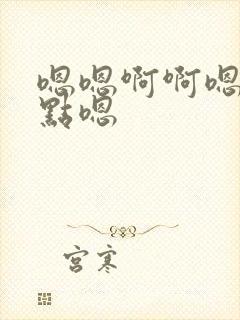 嗯嗯啊啊嗯
點嗯
宫寒